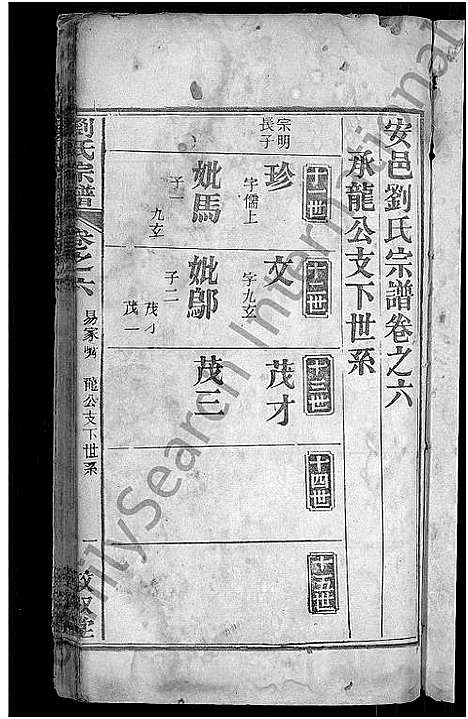 安邑劉氏宗譜卷之六
承龍公支下世系
十一世
十二世
十三世
十四世
十五世
宗明長子
珍
字儒上
妣馬
子一
九玄
文
字九玄
妣鄔
子二
茂才
茂一
茂才
茂三
劉氏宗譜
卷之六
龍公支下世系
一
FamilySearch International